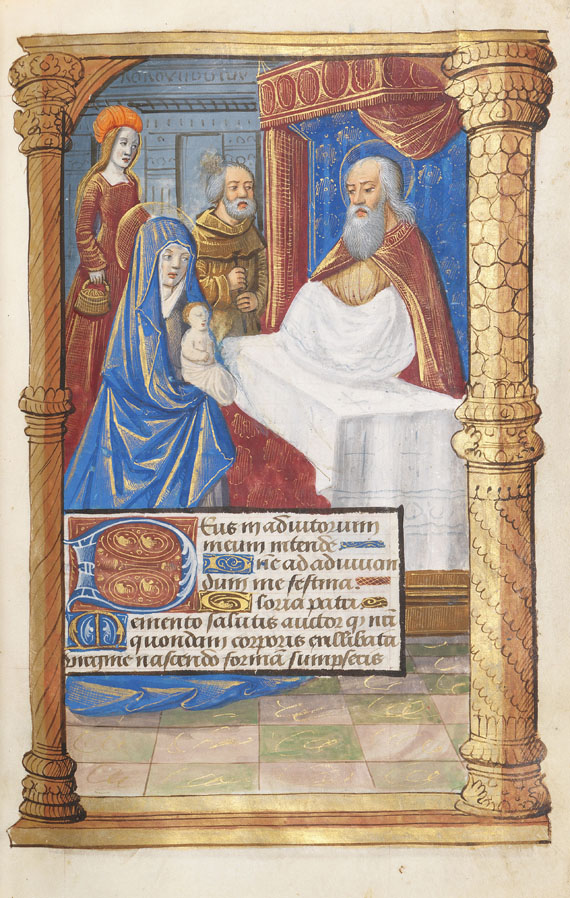 Deus in adiutorium
meum intende
Dñe ad adiuuan
dum me festina.
Gloria patri
Memento salutis auctor q nri
quondam corporis ex illibata
uirgine nascendo formã sumpseris